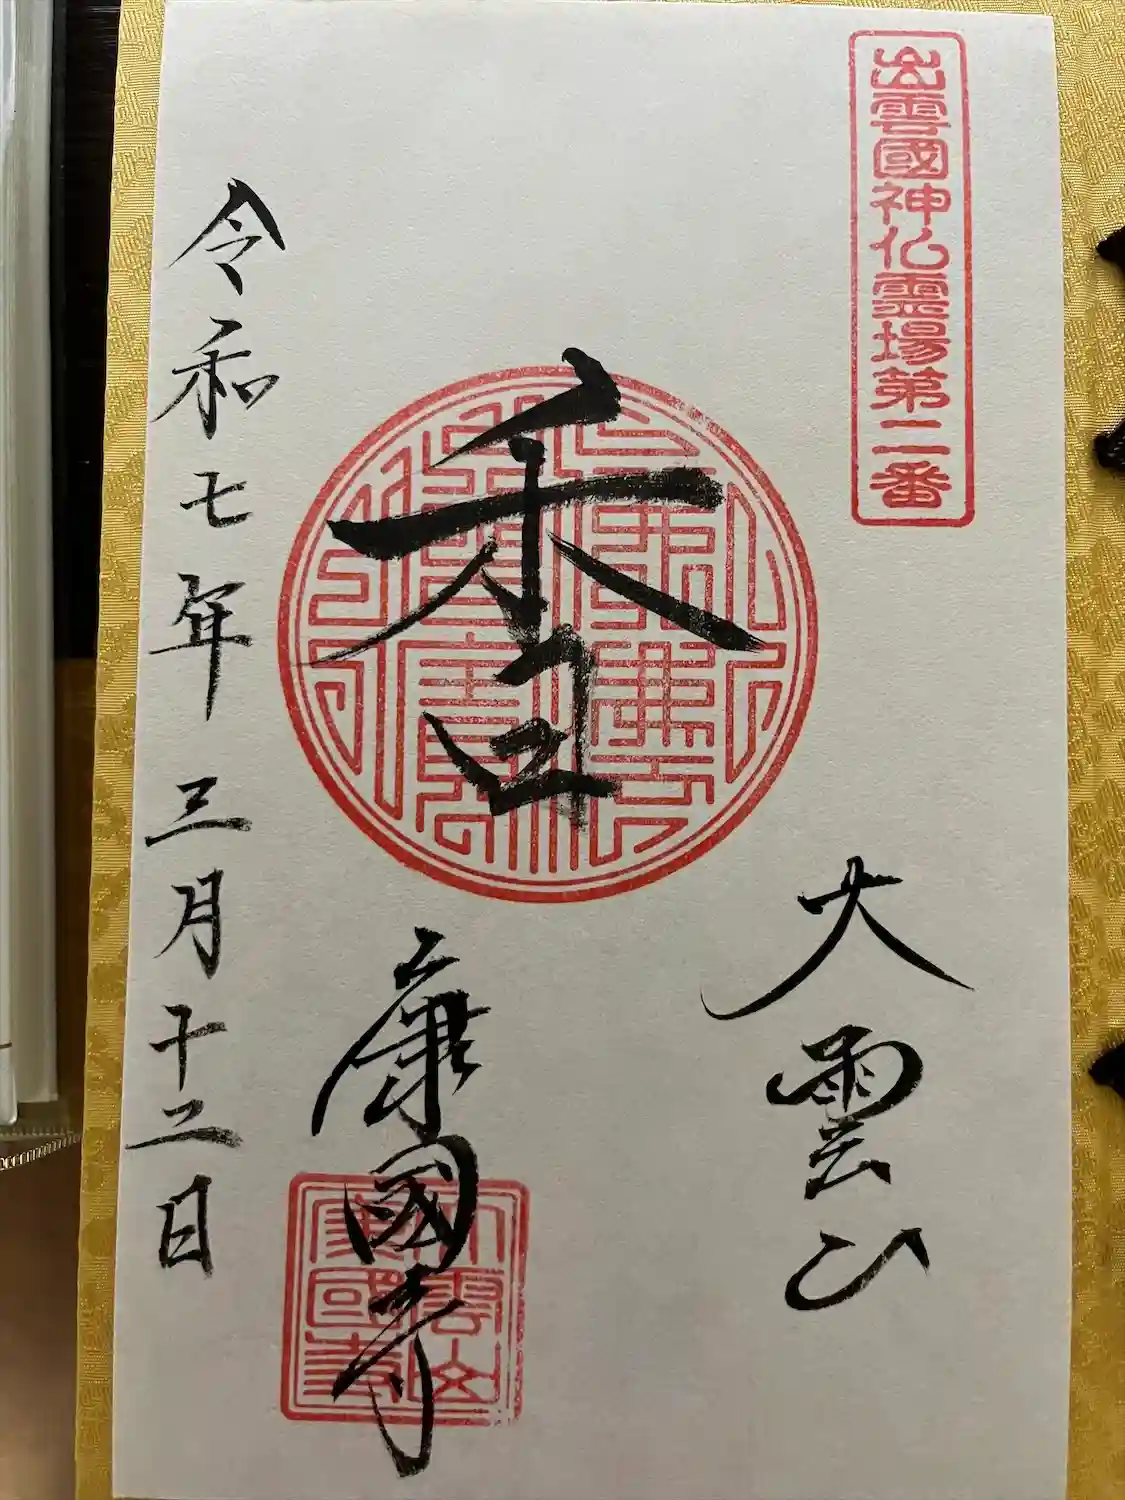 出雲國神仏霊場第二番
大雲山
香
康國寺
大雲山
康國寺
令和七年三月十二日